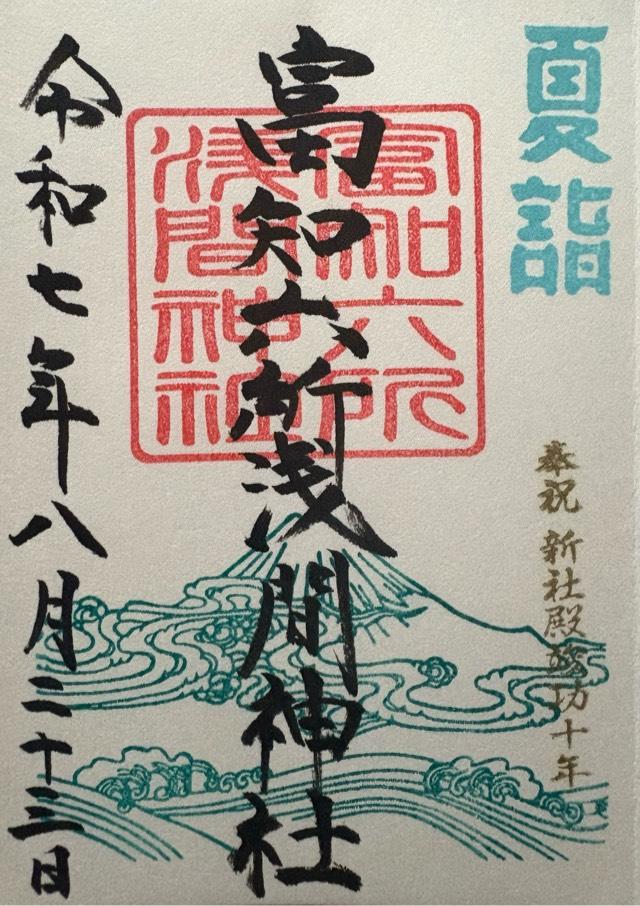 夏詣
奉祝 新社殿竣功十年
富知六所浅間神社
富知六所
浅間神社
令和七年八月二十三日